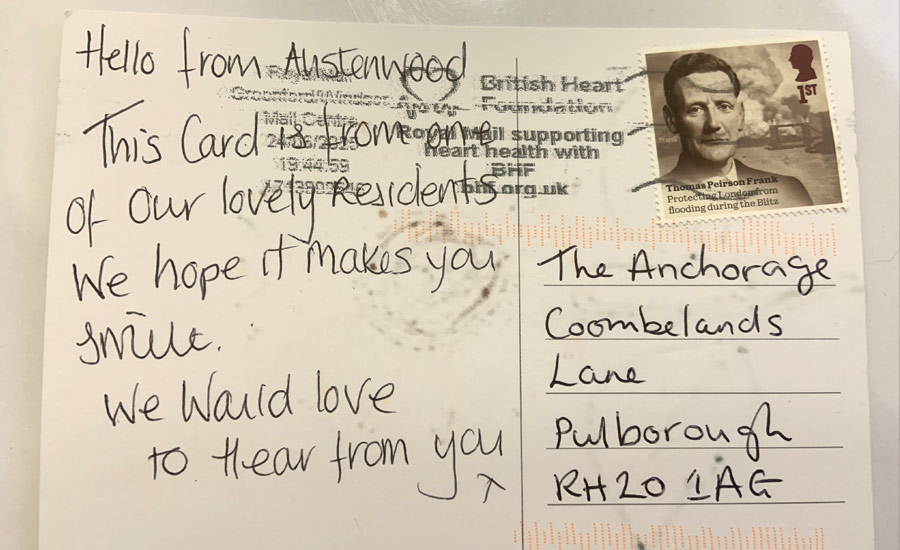 Hello from Austenwood
This Card is from one
of our lovely Residents
We hope it makes you
smile.
We Would love
to Hear from you
Royal Mail
Mail Centre
19:44:59
British Heart
Foundation
Royal Mail supporting
heart health with
BHF
bhf.org.uk
1ST
Thomas Peirson Frank
Protecting London from
flooding during the Blitz
The Anchorage
Coombelands
Lane
Pulborough
RH20 1AG